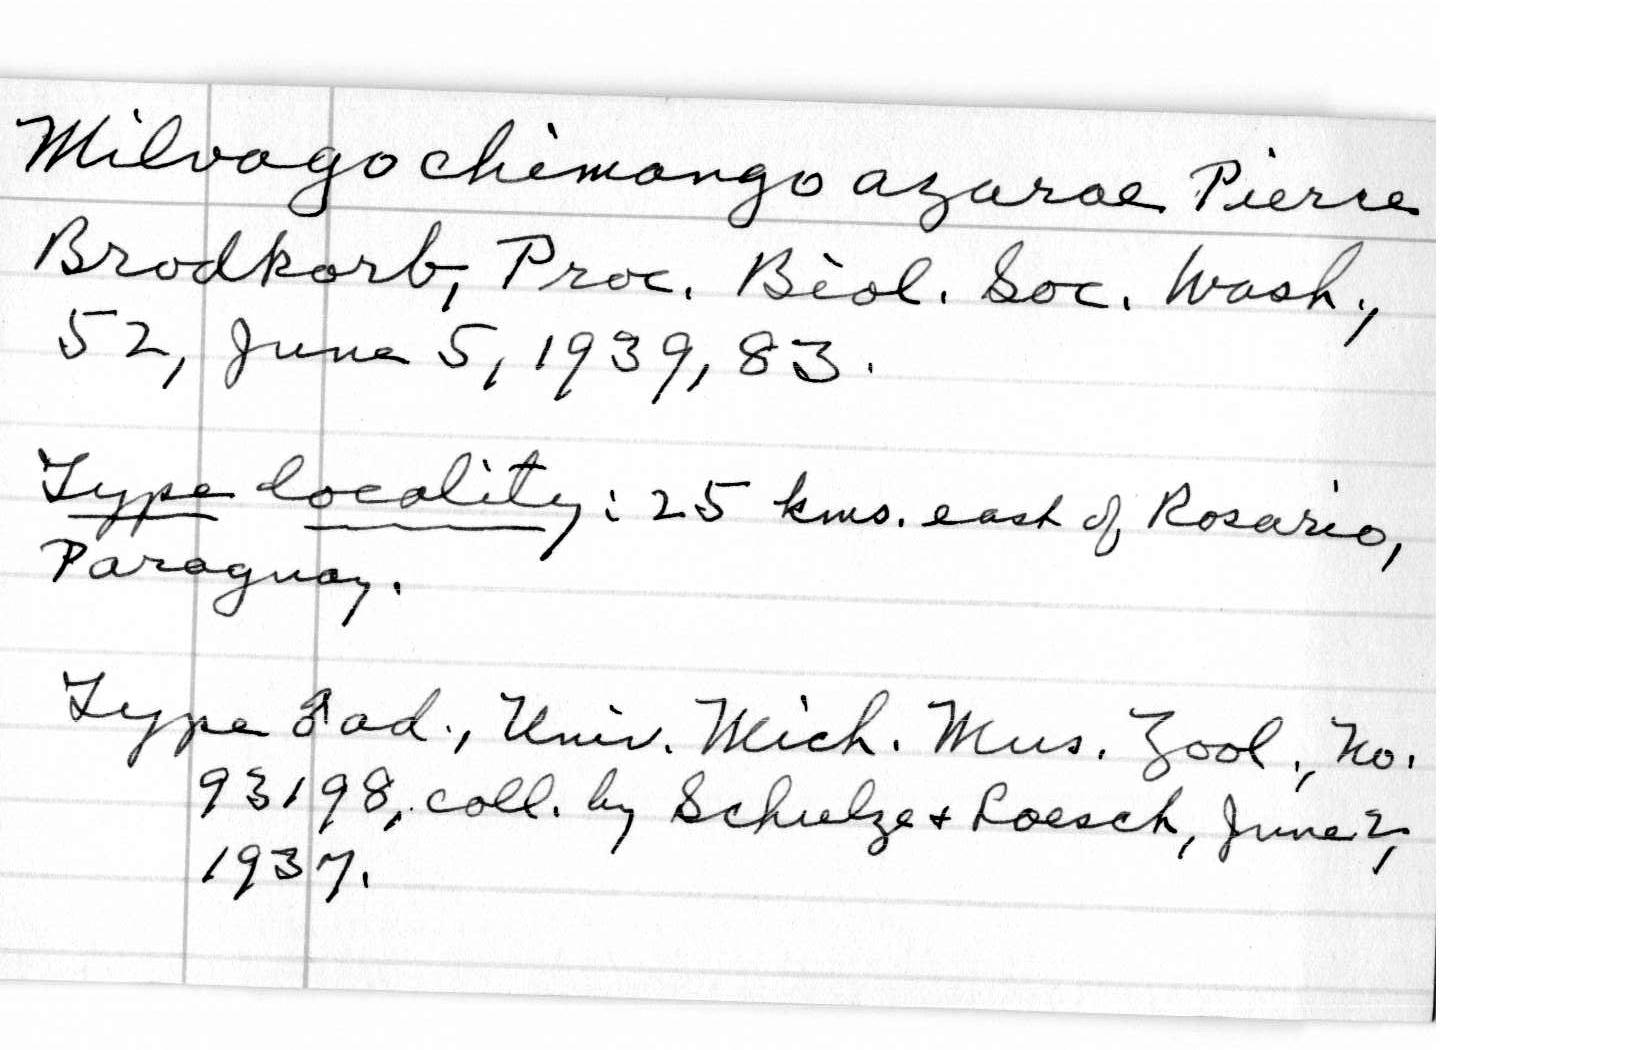 Milvago chimango azarae Pierce
Brodkorb, Proc. Biol. Soc. Wash.,
52, June 5, 1939, 83.
Type locality: 25 kms. east of Rosario,
Paraguay.
Type ♂ ad., Univ. Mich. Mus. Zool., No.
93198, coll. by Schulze + Loesch, June 2,
1937.